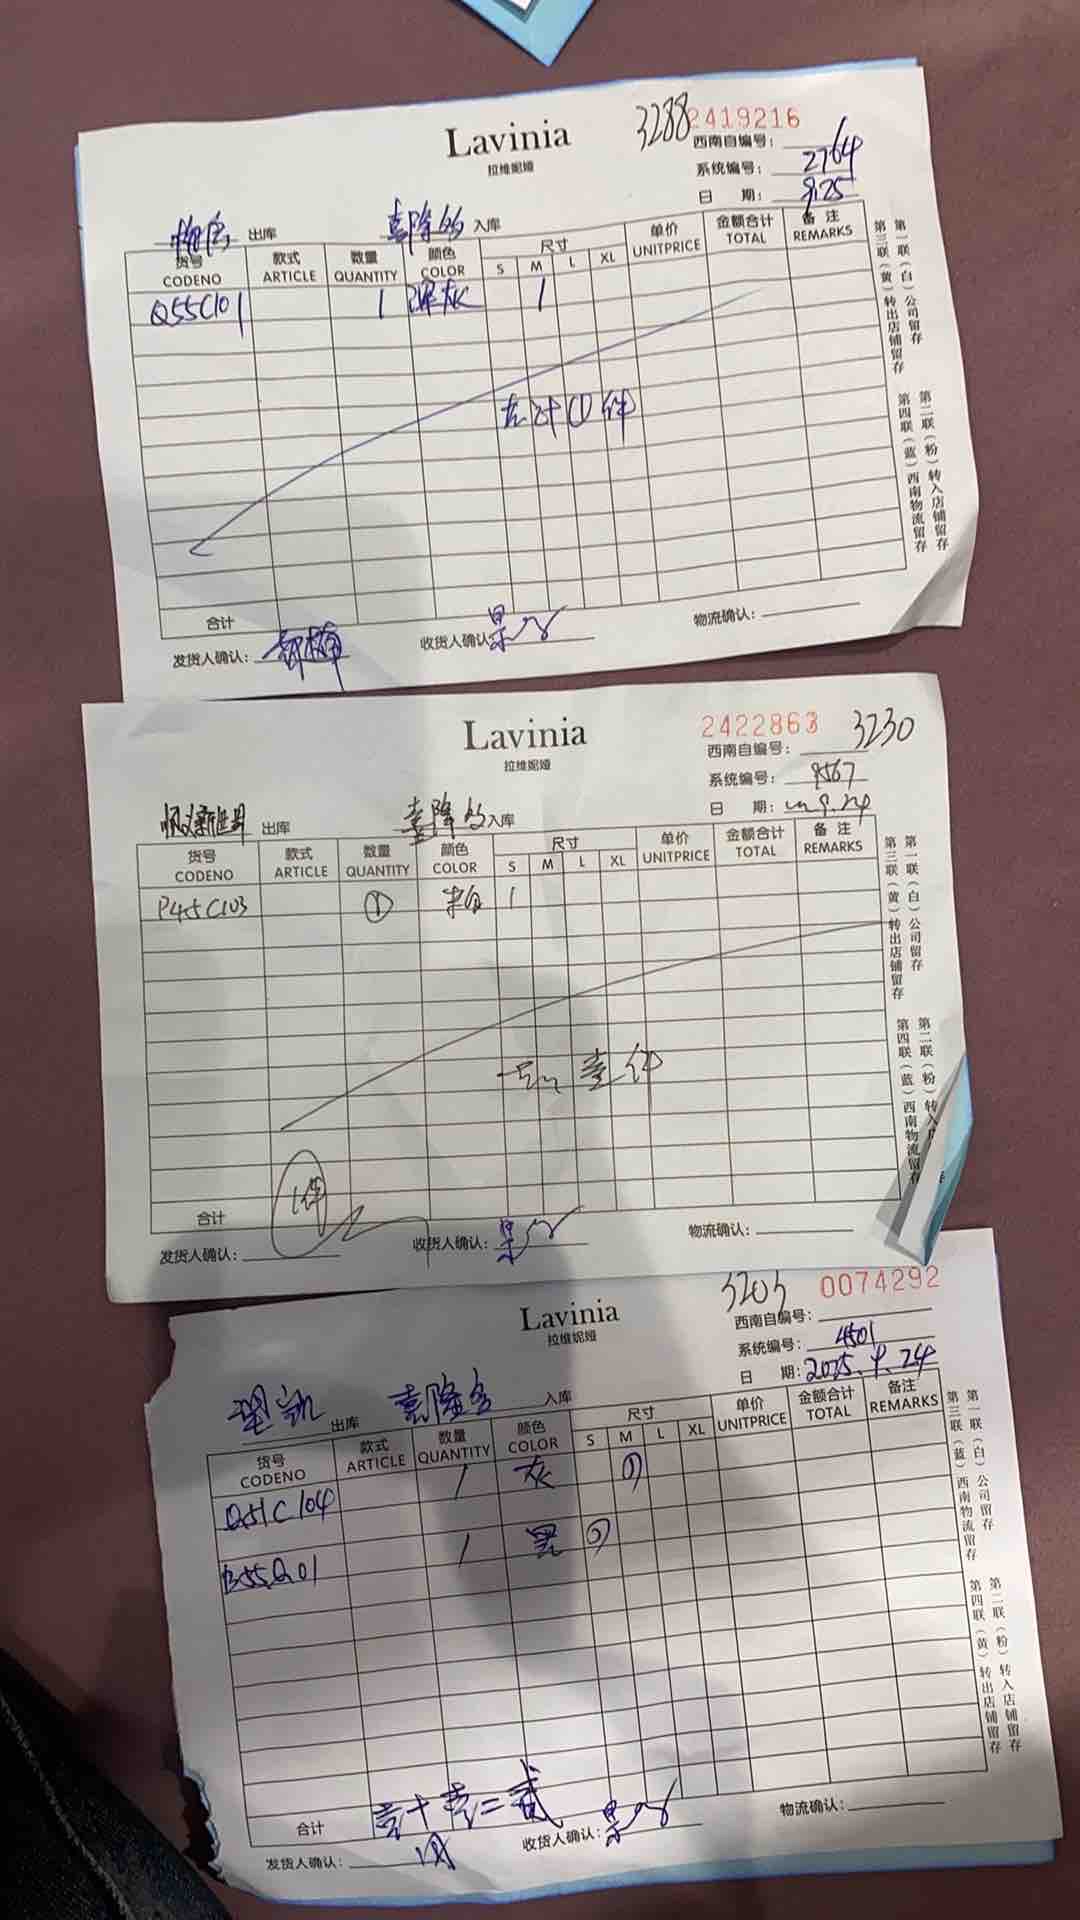 Lavinia
拉维妮娅
3288 2419216
西南自编号：
系统编号： 2764
日 期： 9.25
出库 入库
货号 CODENO 款式 ARTICLE 数量 QUANTITY 颜色 COLOR 尺寸 S M L XL 单价 UNITPRICE 金额合计 TOTAL 备注 REMARKS
Q55C101 1 深灰 1
共计①件
合计
发货人确认： 收货人确认： 物流确认：
第一联（白）公司留存
第三联（黄）转出店铺留存
第二联（粉）转入店铺留存
第四联（蓝）西南物流留存
Lavinia
拉维妮娅
2422863 3230
西南自编号：
系统编号： 9567
日 期：
出库 入库
货号 CODENO 款式 ARTICLE 数量 QUANTITY 颜色 COLOR 尺寸 S M L XL 单价 UNITPRICE 金额合计 TOTAL 备注 REMARKS
P45C103 ① 1
壹件
1件
合计
发货人确认： 收货人确认： 物流确认：
第一联（白）公司留存
第三联（黄）转出店铺留存
第二联（粉）转入
第四联（蓝）西南物流留存
Lavinia
拉维妮娅
3203 0074292
西南自编号：
系统编号： 4501
日 期： 2025.9.24
出库 入库
货号 CODENO 款式 ARTICLE 数量 QUANTITY 颜色 COLOR 尺寸 S M L XL 单价 UNITPRICE 金额合计 TOTAL 备注 REMARKS
Q51C104 1 灰 ①
B55Q01 1 黑 ①
合计 壹+壹=贰
发货人确认： 收货人确认： 物流确认：
第一联（白）公司留存
第三联（蓝）西南物流留存
第二联（粉）转入店铺留存
第四联（黄）转出店铺留存